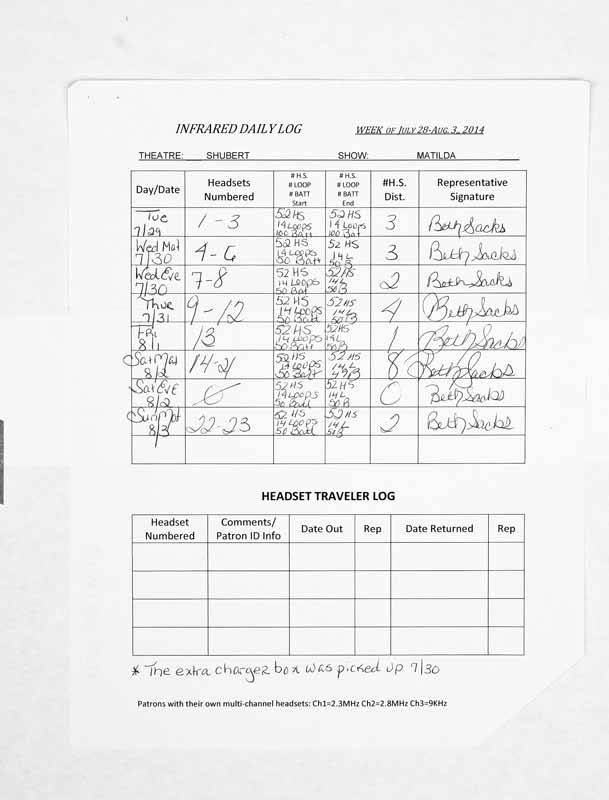 INFRARED DAILY LOG WEEK OF JULY 28-AUG. 3, 2014
THEATRE: SHUBERT SHOW: MATILDA
Day/Date Headsets Numbered # H.S. # LOOP # BATT Start # H.S. # LOOP # BATT End #H.S. Dist. Representative Signature
Tue 7/29 1-3 52 HS 14 Loops 100 Batt 52 HS 14 Loops 100 Bat 3 Beth Sacks
Wed Mat 7/30 4-6 52 HS 14 Loops 50 Batt 52 HS 14 L 50 B 3 Beth Sacks
Wed Eve 7/30 7-8 52 HS 14 Loops 50 Bat 52 HS 14 L 50 B 2 Beth Sacks
Thur 7/31 9-12 52 HS 14 Loops 50 Batt 52 HS 14 L 50 B 4 Beth Sacks
Fri 8/1 13 52 HS 14 Loops 50 Batt 52 HS 14 L 50 B 1 Beth Sacks
Sat Mat 8/2 14-21 52 HS 14 Loops 50 Batt 52 HS 14 L 8 Beth Sacks
Sat EVE 8/2 0 52 HS 14 Loops 50 Batt 52 HS 14 L 50 B 0 Beth Sacks
Sun Mat 8/3 22-23 52 HS 14 Loops 50 Batt 52 HS 14 L 50 B 2 Beth Sacks
HEADSET TRAVELER LOG
Headset Numbered Comments/ Patron ID Info Date Out Rep Date Returned Rep
* The extra charger box was picked up 7/30
Patrons with their own multi-channel headsets: Ch1=2.3MHz Ch2=2.8MHz Ch3=9KHz